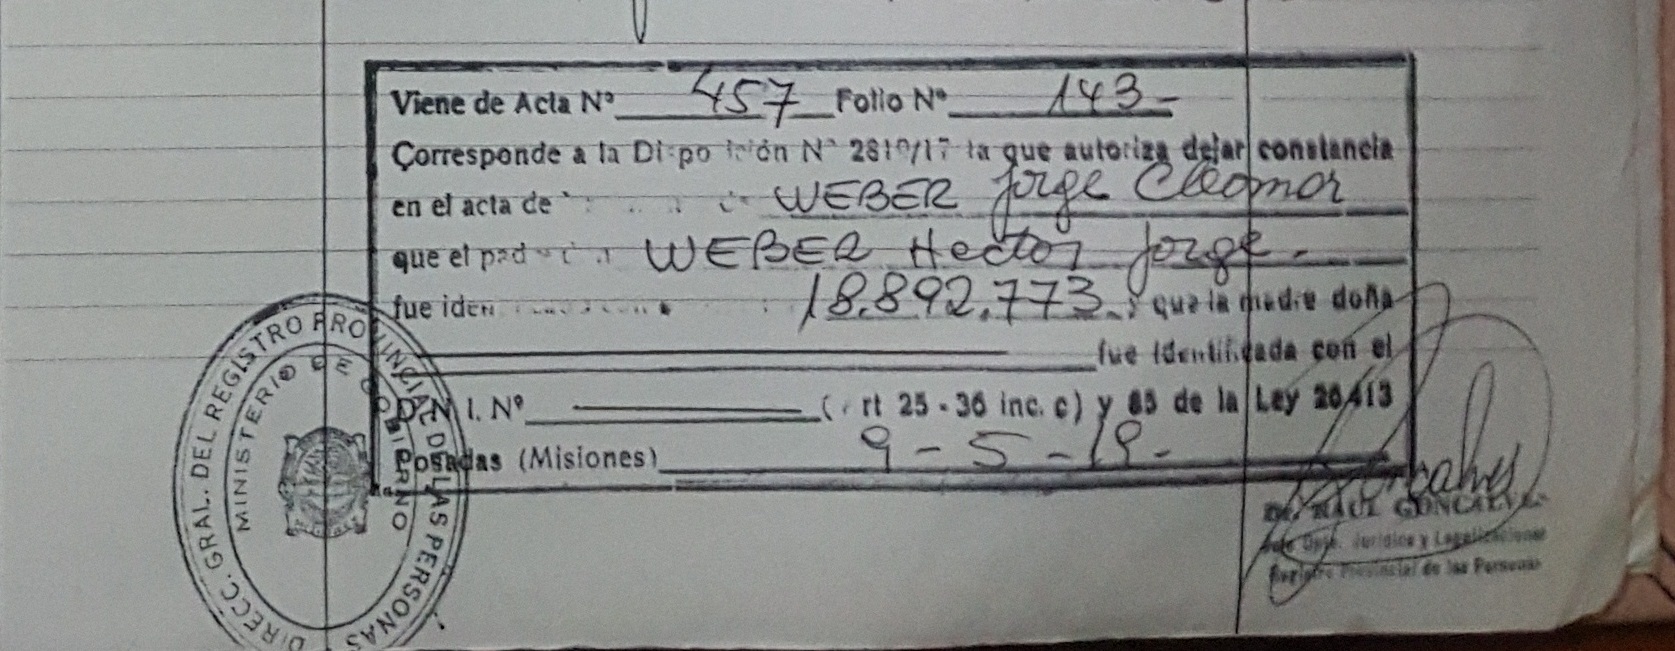 Viene de Acta Nº 457 Folio Nº 143-
Corresponde a la Nº 281 /17 la que autoriza dejar constancia
en el acta de WEBER Jorge Cleomar
que el WEBER Hector Jorge.
fue 18.892.773. y que la madre doña
fue identificada con el
D.N.I. Nº ( rt 25 - 36 inc. c) y 85 de la Ley 26413
Posadas (Misiones) 9-5-19-
DIRECC. GRAL. DEL REGISTRO PROVINCIAL DE LAS PERSONAS
MINISTERIO DE GOBIERNO
Dr. RAUL GONCALVES
Jefe Dpto. Jurídico y Legalizaciones
Registro Provincial de las Personas